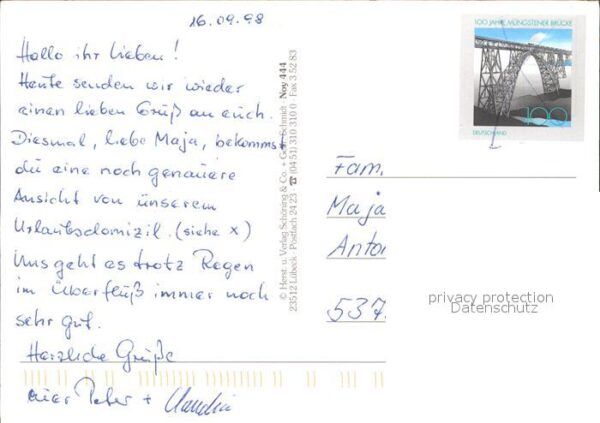 16.09.98
Hallo ihr Lieben!
Heute senden wir wieder
einen lieben Gruß an euch.
Diesmal, liebe Maja, bekommst
du eine noch genauere
Ansicht von unserem
Urlaubsdomizil. (siehe x)
Uns geht es trotz Regen
im Überfluß immer noch
sehr gut.
Herzliche Grüße
eure Peter + Claudia
© Herst. u. Verlag Schöning & Co. + Gebr. Schmidt · Noy 444
23512 Lübeck · Postfach 24 23 · ☎ (04 51) 310 310 0 · Fax 3 52 83
100 JAHRE MÜNGSTENER BRÜCKE
100
DEUTSCHLAND
Fam.
Maja
Anto
537
privacy protection
Datenschutz